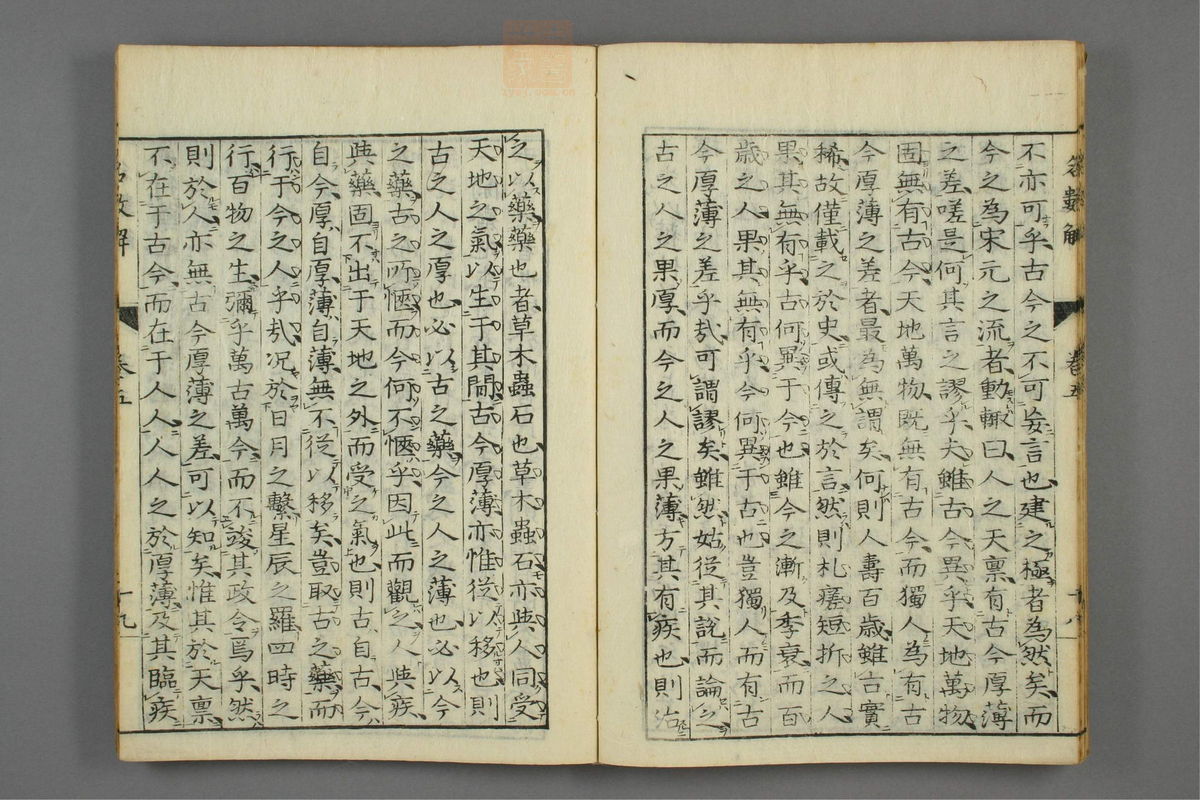 不亦可乎古今之不可妄言也建之極者為然矣而
今之為宋元之流者動輙曰人之天禀有古今厚薄
之差嗟是何其言之謬乎夫雖古今異乎天地萬物
固無有古今天地萬物既無有古今而獨人為有古
今厚薄之差者最為無謂矣何則人壽百歲雖古實
稀故僅載之於史或傳之於言然則札瘥短折之人
果其無有乎古何異于今也雖今之漸及季衰而百
歲之人果其無有乎今何異于古也豈獨人而有古
今厚薄之差乎哉可謂謬矣雖然姑從其說而論之
古之人之果厚而今之人之果薄方其有疾也則治
之以藥藥也者草木蟲石也草木蟲石亦與人同受
天地之氣以生于其間古今厚薄亦惟從以移也則
古之人之厚也必以古之藥今之人之薄也必以今
之藥古之所愜而今何不愜乎因此而觀之人與疾
與藥固不出于天地之外而受之氣也則古自古今
自今厚自厚薄自薄無不從以移矣豈取古之藥而
行于今之人乎哉况於日月之繫星辰之羅四時之
行百物之生彌乎萬古萬今而不竢其政令焉乎然
則於人亦無古今厚薄之差可以知矣惟其於天禀
不在于古今而在于人人人人之於厚薄及其臨疾
卷五
十八
十九